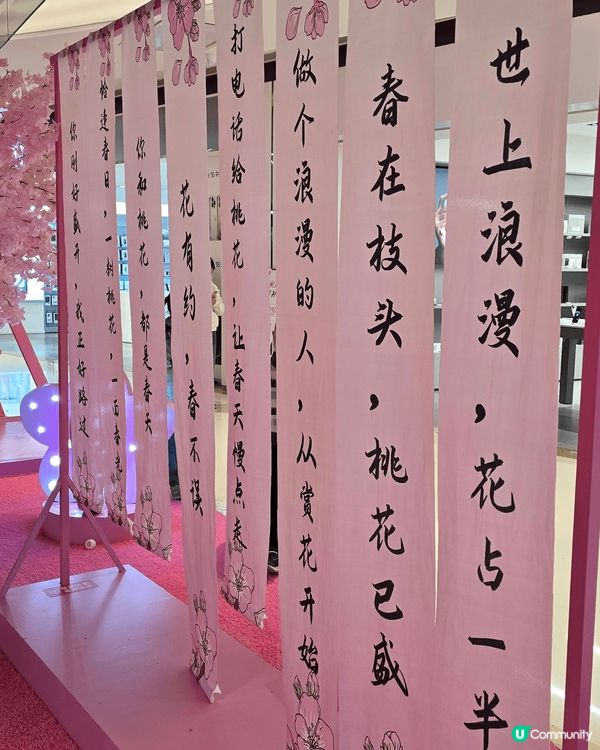 世上浪漫，花占一半
春在枝头，桃花已盛
做个浪漫的人，从赏花开始
打电话给桃花，让春天慢点
花有约，春不误
你和桃花，都是春天
恰逢春日，一树桃花，一面春光
你刚好盛开，我正好路过
U Community